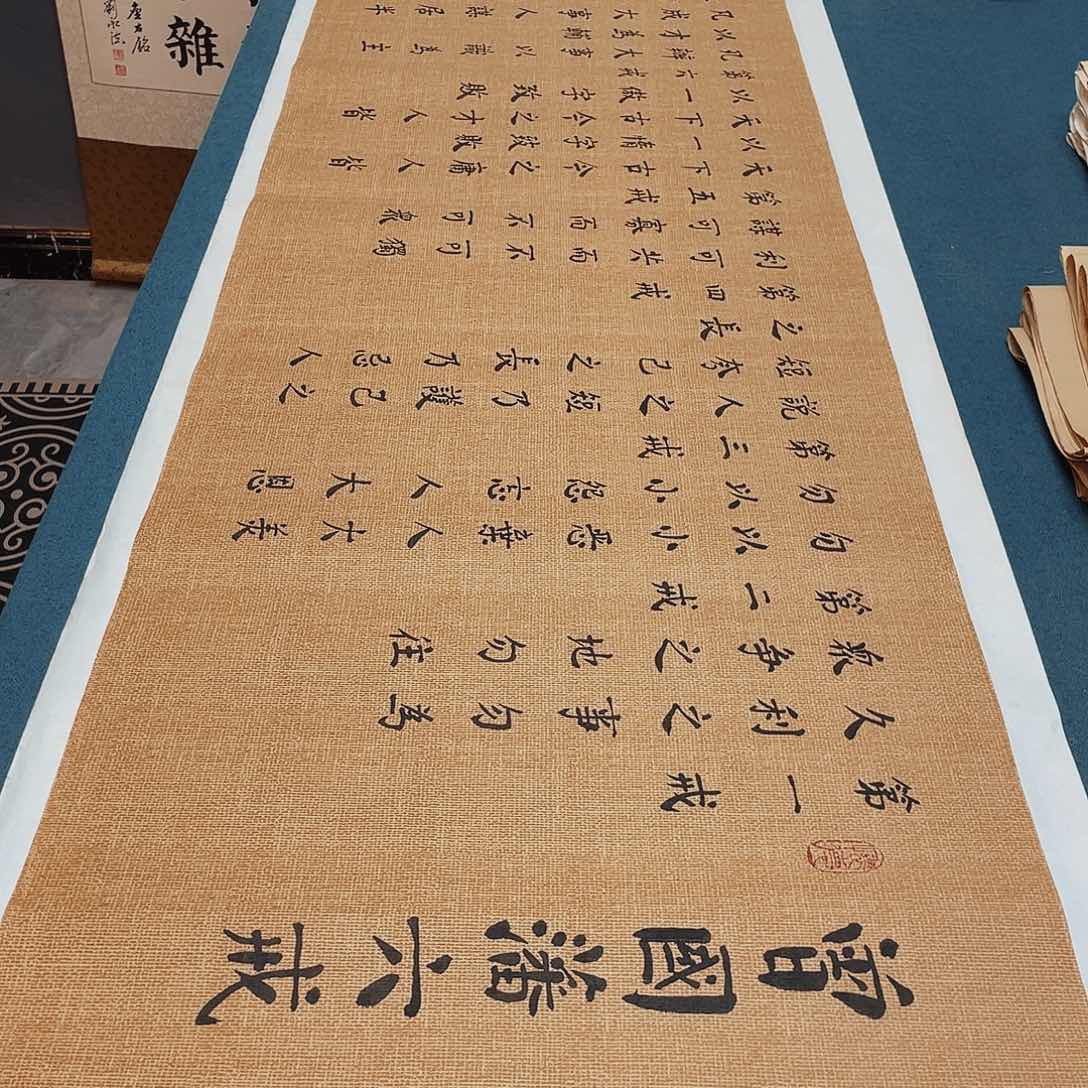 曾國藩六戒
第一戒
久利之事勿為
衆争之地勿往
第二戒
勿以小恶棄人大美
勿以小怨忘人大恩
第三戒
説人之短乃護己之
短夸己之長乃忌人
之長
第四戒
利可共而不可獨
謀可寡而不可衆
第五戒
天下古今之庸人皆
以一惰字致敗
天下古今之才人皆
以一傲字致敗
第六戒
凡辦大事以識為主
以才為輔
凡成大事人謀居半
雜
座右銘